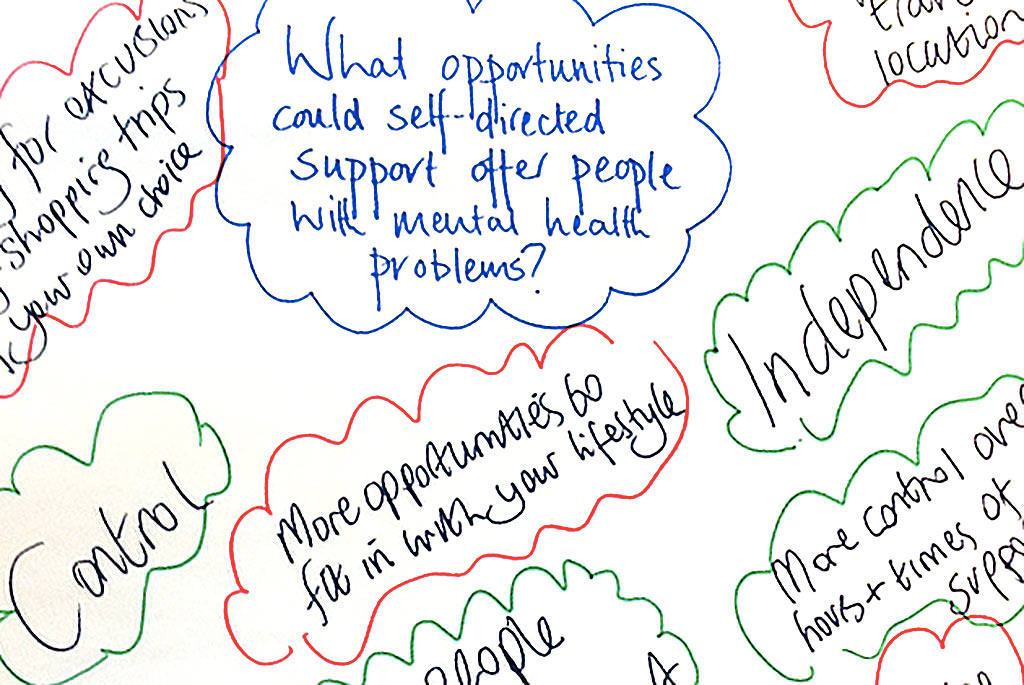 What opportunities
could self-directed
support offer people
with mental health
problems?
for excursions
shopping trips
your own choice
location
Independence
More opportunities to
fit in with your lifestyle
Control
More control over
hours + times of
people